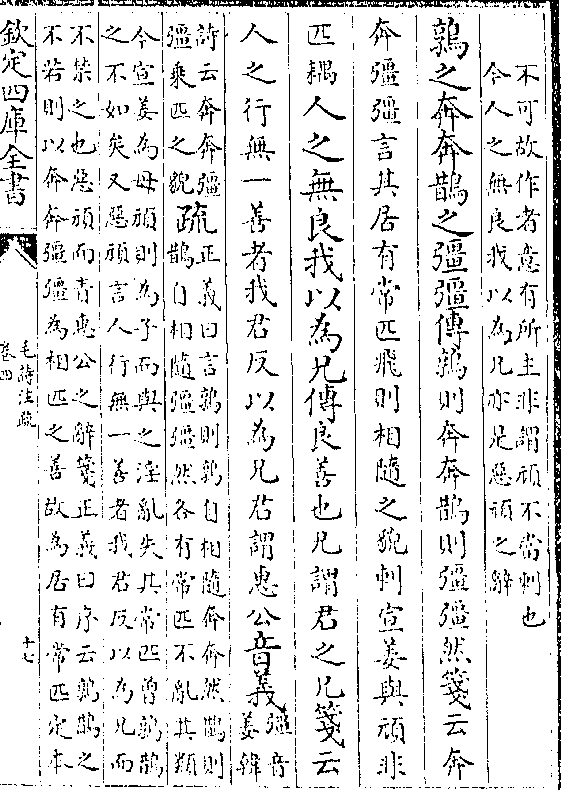 不可故作者意有所主非謂頑不當刺也
今人之無良我以為兄亦是惡頑之辭
鶉之奔奔鵲之彊彊傳鶉則奔奔鵲則彊彊然箋云奔
奔彊彊言其居有常匹飛則相隨之貌刺宣姜與頑非
匹耦人之無良我以為兄傳良善也兄謂君之兄箋云
人之行無一善者我君反以為兄君謂惠公音義彊音
姜韓
詩云奔奔彊
彊乘匹之貌疏正義曰言鶉則鶉自相隨奔奔然鵲則
鵲自相隨彊彊然各有常匹不亂其類
今宣姜為母頑則為子而與之淫亂失其常匹曾鶉鵲
之不如矣又惡頑言人行無一善者我君反以為兄而
不禁之也惡頑而責惠公之辭箋正義曰序云鶉鵲之
不若則以奔奔彊彊為相匹之善故為居有常匹定本
欽定四庫全書
毛詩注疏
卷四
十七